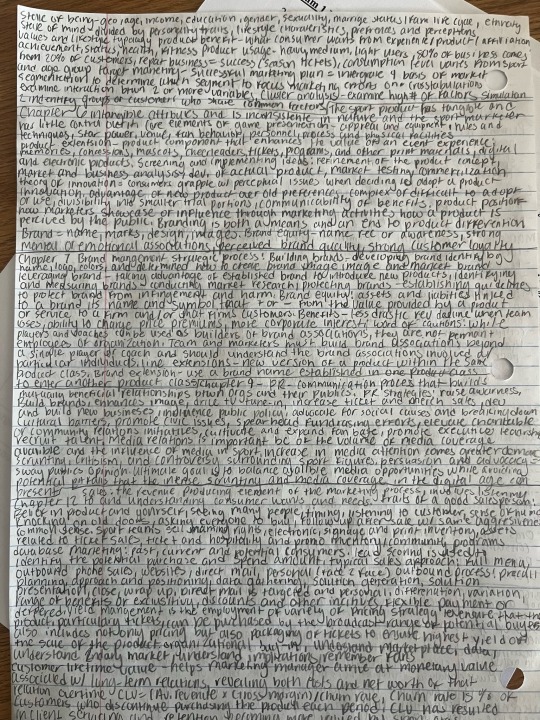 State of being - geo, age, income, education, gender, sexuality, marriage status/fam life cycle, ethnicity
state of mind - divided by personality traits, lifestyle characteristics, preferences and perceptions,
values and lifestyle typology product benefit - what consumer wants from experience/product/affiliation
achievement, status, health, fitness product usage - heavy, medium, light users, 80% of business comes
from 20% of customers, repeat business = success (season tickets), consumption level varies from sport
and org group target marketing - successful marketing plan = integrate 4 bases of market
segmentation to determine which segment to focus marketing efforts on crosstabulation
examine interaction btwn 2 or more variables, cluster analysis - examine hundreds of factors, simulation
identify groups of customer who share common interests The sport product has tangible and
Chapter 6 intangible attributes and is inconsistent in nature and the sport marketer
has little control with core elements of game presentation - apparel and equipment, rules and
techniques, star power, venue, fan behavior, personnel, process and physical facilities
product extension - product component that enhances the value of an event experience
memories, concessions, mascots, cheerleaders, tickets, programs, and other print materials, digital
and electronic products, screening and implementing ideas: refinement of the product concept,
market and business analysis, dev. of actual product, market testing, commercialization
theory of innovation: consumers grapple w/ perceptual issues when deciding to adopt a product
innovation, advantage of new product over old preference, complex or difficult to adopt
or use, divisibility and smaller trial portions, communicability of benefits, product position-
how marketers showcase or influence through marketing activities how a product is
perceived by the public. Branding is both a means and an end to product differentiation
Brand = name, marks, design, images. Brand equity - name rec or awareness, strong
mental or emotional associations, perceived brand quality, strong customer loyalty
Chapter 7 Brand management strategic process: Building brands - developing brand identity
name, logo, colors and determined how to create brand image and market brand
leveraging brand - taking advantage of established brand to introduce new products, identifying
and measuring brands - conducting market research, protecting brands - establishing guidelines
to protect brand from infringement and harm. Brand equity: assets and liabilities linked
to a brand, its name and symbol that + or - from the value provided by a product
or service to a firm and/or that firm's customers. Benefits - less drastic rev decline when team
loses, ability to charge price premiums, more corporate interest. word of cautions: while
players and coaches can be used as builders of brand associations, they are not permanent
employees of organization. Team and marketers must build brand associations beyond
a single player or coach and should understand the brand associations involved w/
particular individual. Line extensions - new version of a product within the same
product class. Brand extension - use a brand name established in one product class
to enter another product class. Chapter 9 - PR - communication process that builds
mutually beneficial relationships btwn orgs and their publics. PR strategies: raise awareness,
build brands, enhance image, drive tune-in, increase ticket and merch sales, seed
and build new businesses, influence public policy, advocate for social causes and breaking down
cultural barriers, promote civic issues, spearhead fundraising efforts, elevate charitable
or community relations initiatives, cultivate and expand fan base, promote executive leadership,
recruit talent. Media relations is important bc of the volume of media coverage
available and the influence of media in sport, increase in media attention comes greater demand
scrutiny, criticism, and controversy surrounding sport figures, persuasion and advocacy =
sway public opinion, ultimate goal is balance avail able media opportunities while avoiding
potential pitfalls that the intense scrutiny and media coverage in the digital age can
present. Sales: the revenue producing element of the marketing process, involves listening
Chapter 12 to and understanding consumer wants and needs. Traits of a good salesperson:
belief in product and yourself, seeing many people, timing, listening to customer, sense of humor
knocking on old doors, asking everyone to buy, follow up after sale w/ same aggressiveness
common sense. sport teams sell: naming rights, electronic, signage and print inventory, assets
related to ticket sales, ticket and hospitality and promo inventory, community programs
database marketing: past, current and potential consumers. Lead scoring is used to
identify the potential purchase and spend amount. typical sales approach: full menu,
outbound phone sales, websites, direct mail, personal (face 2 face), outbound process: precall
planning, approach and positioning, data gathering, solution generation, solution
presentation, close, wrap up. Direct mail is targeted and personal, differentiation, variation,
range of benefits or exclusivity, discounts and other incentives, flexible payment or
deferred. yield management is the employment of variety of pricing strategy to ensure that the
product, particularly tickets, can be purchased by the broadest range of potential buyers
also includes not only pricing but also packaging of tickets to ensure highest yield on
the sale of the product, organizational buy-in, understand marketplace, data,
understand 2ndary market,
customer lifetime value - helps marketer arrive at monetary value
associated w/ long-term relations, revealing both costs and net worth of that
relation overtime. CLV = (Av. revenue x Gross margin)/churn rate. Churn rate is % of
customers who discontinue purchasing the product each period, CLV has resulted
in client servicing and retention becoming